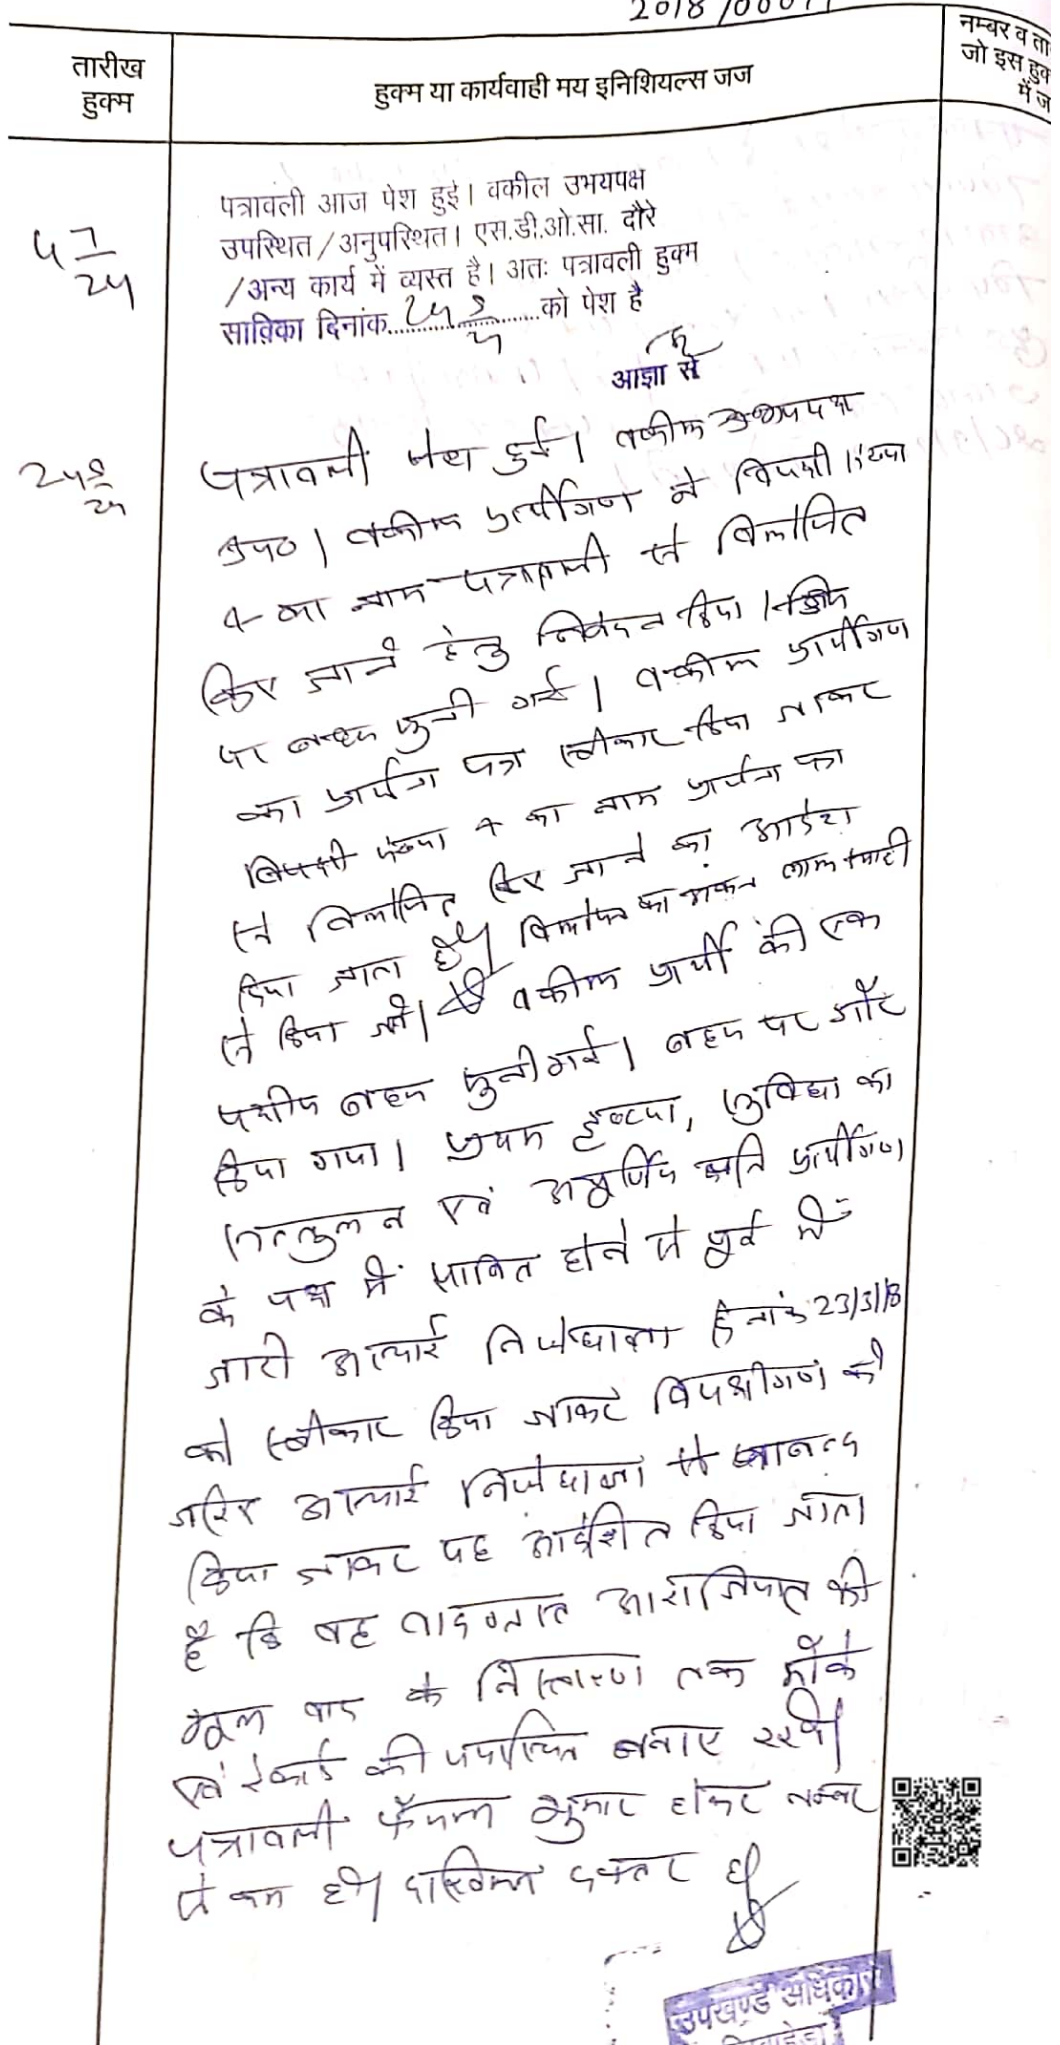 2018/000
तारीख
हुक्म
हुक्म या कार्यवाही मय इनिशियल्स जज
नम्बर व ता
जो इस हुक
में ज
पत्रावली आज पेश हुई। वकील उभयपक्ष
उपस्थित/अनुपस्थित। एस.डी.ओ.सा. दौरे
/अन्य कार्य में व्यस्त है। अतः पत्रावली हुक्म
साबिका दिनांक को पेश है
आज्ञा से
पत्रावली पेश हुई। वकील उभयपक्ष
उप०। वकील प्रार्थीगण ने विपक्षी संख्या
4 का नाम पत्रावली से विलोपित
किए जाने हेतु निवेदन किया।
पर बहस सुनी गई। वकील प्रार्थीगण
का प्रार्थना पत्र स्वीकार किया जाकर
विपक्षी संख्या 4 का नाम प्रार्थना पत्र
से विलोपित किए जाने का आदेश
दिया जाता है। विलोपन का अंकन लाल स्याही
से किया जावे। वकील प्रार्थी की एक
पक्षीय बहस सुनी गई। बहस पर गौर
किया गया। प्रथम दृष्टया, सुविधा का
सन्तुलन एवं अपूर्णिय क्षति प्रार्थीगण
के पक्ष में साबित होने से पूर्व में
जारी अस्थाई निषेधाज्ञा दिनांक 23/3/18
को स्वीकार किया जाकर विपक्षीगण को
जरिए अस्थाई निषेधाज्ञा से पाबन्द
किया जाकर यह आदेशित किया जाता
है कि वह वादग्रस्त आराजियात की
मूल वाद के निस्तारण तक मौके
एवं रेकार्ड की यथास्थिति बनाए रखे।
पत्रावली फैसल शुमार होकर नम्बर
से कम हो। दाखिल दफ्तर हो।
उपखण्ड अधिकारी